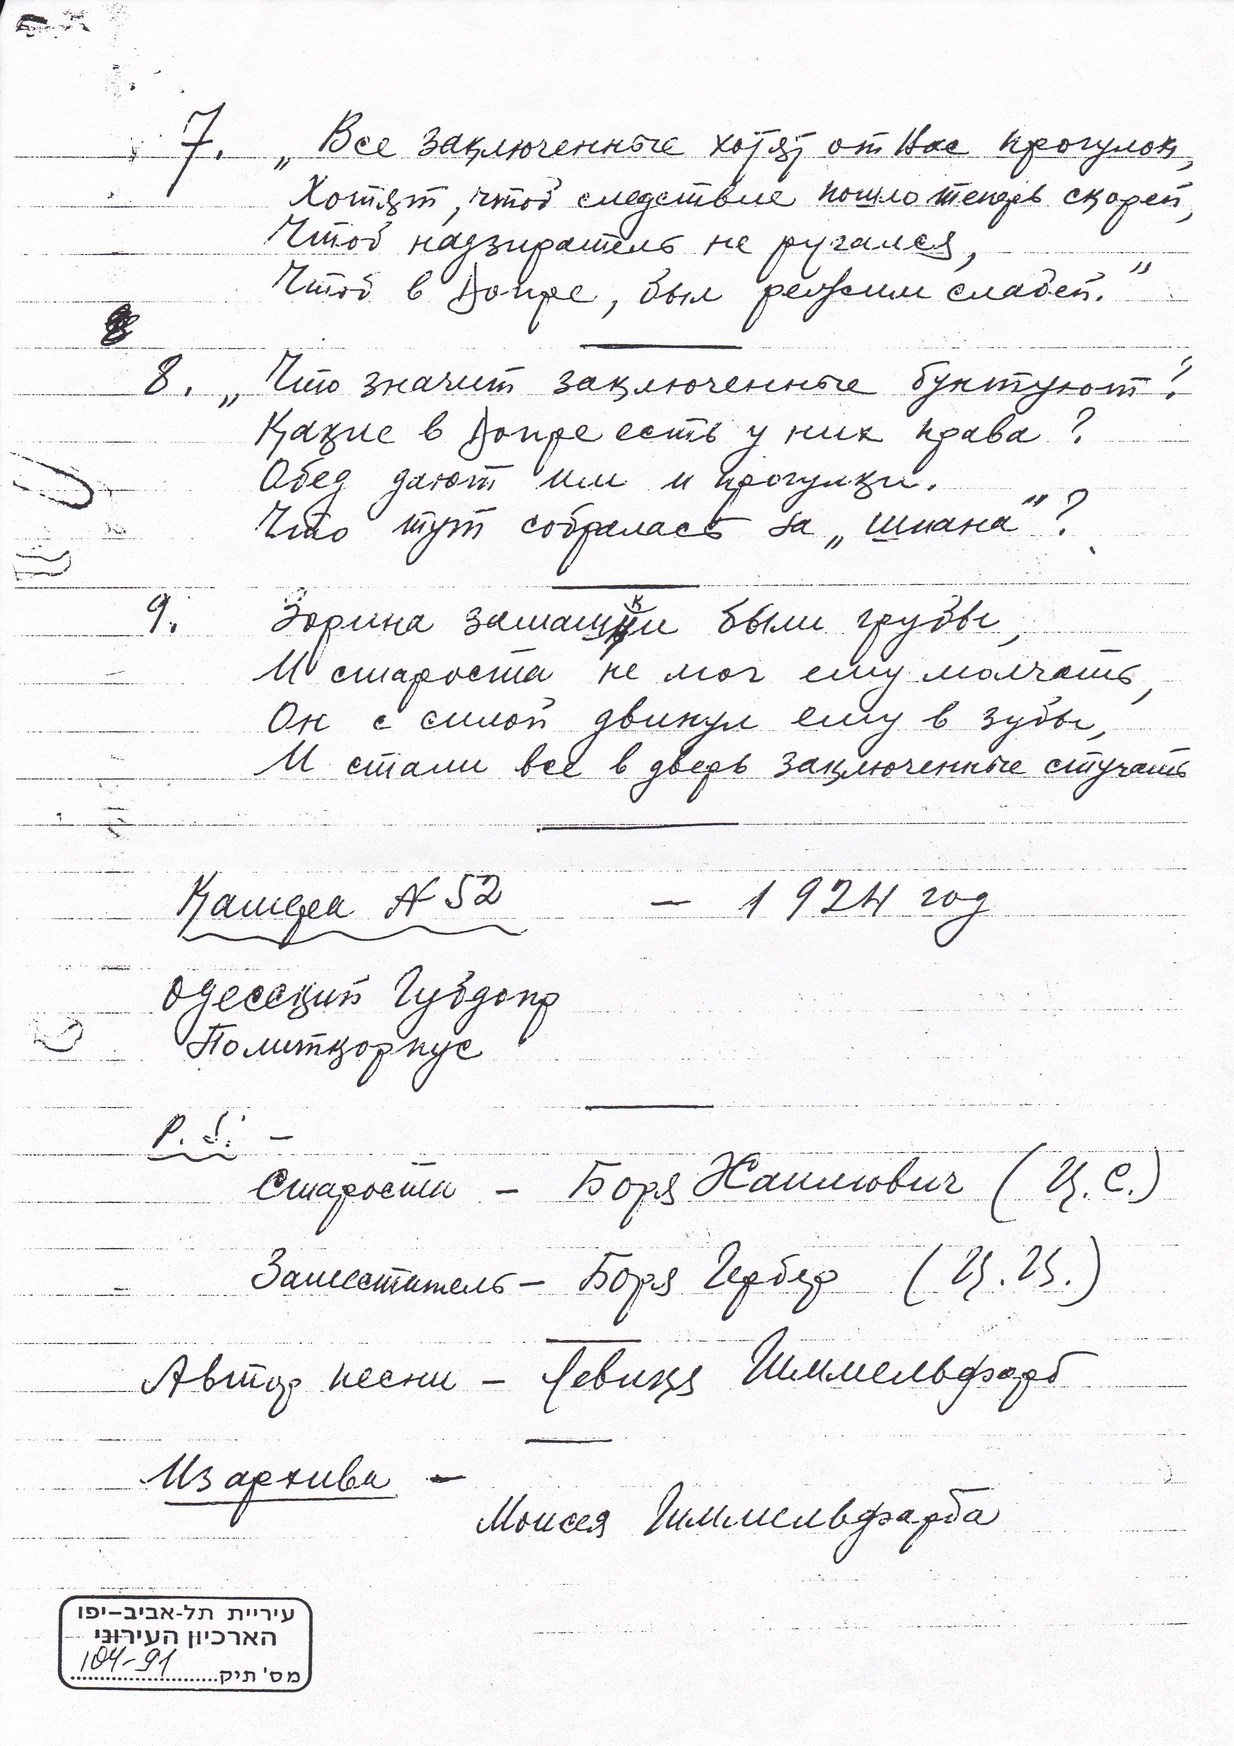 7. „Все заключенные хотят от Вас прогулок,
Хотят, чтоб следствие пошло теперь скорей,
Чтоб надзиратель не ругался,
Чтоб в Допре, был режим слабей.”
8. „Что значит заключенные бунтуют?
Какие в Допре есть у них права?
Обед дают им и прогулки.
Что тут собралась за „шпана”?
9. Зорина замашки были грубы,
И староста не мог ему молчать,
Он с силой двинул ему в зубы,
И стали все в дверь заключенные стучать
Камера N 52 – 1924 год
Одесский Губдопр
Политкорпус
P.S. –
Староста – Боря Хаимович (Ц.С.)
Заместитель – Боря Гербер (Ц.Ц.)
Автор песни – Левика Гиммельфарб
Из архива –
Моисея Гиммельфарба
עיריית תל-אביב–יפו
הארכיון העירוני
מס' תיק 104-91